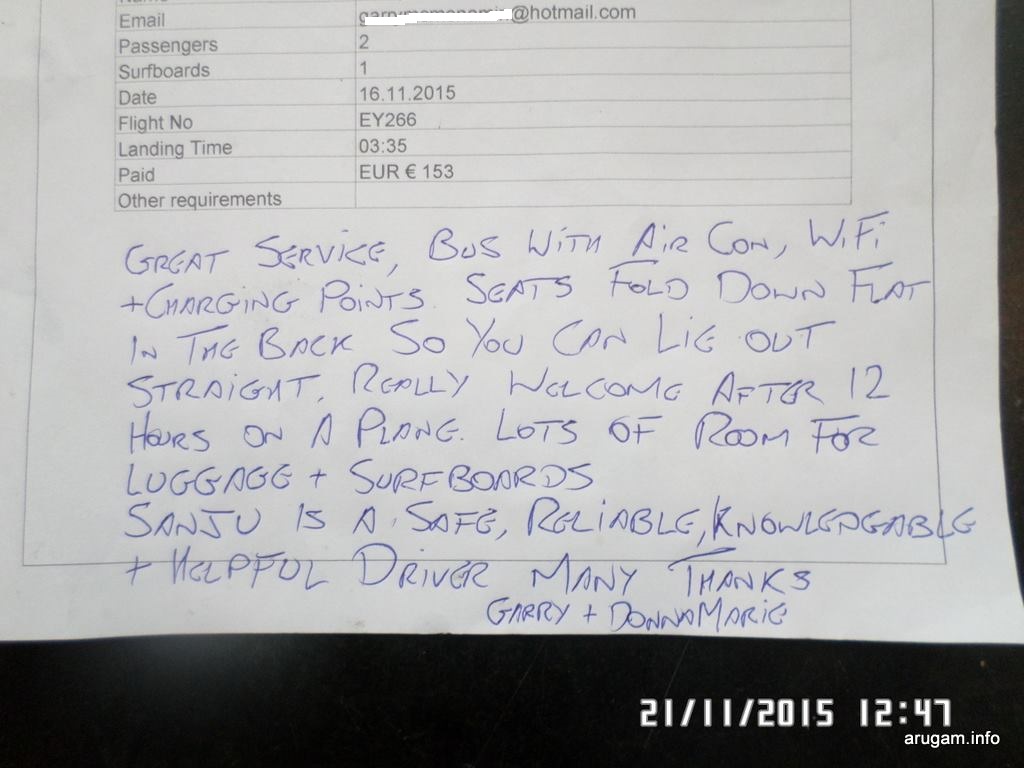 Email @hotmail.com
Passengers 2
Surfboards 1
Date 16.11.2015
Flight No EY266
Landing Time 03:35
Paid EUR € 153
Other requirements
GREAT SERVICE, BUS WITH AIR CON, WIFI
+CHARGING POINTS. SEATS FOLD DOWN FLAT
IN THE BACK SO YOU CAN LIE OUT
STRAIGHT. REALLY WELCOME AFTER 12
HOURS ON A PLANE. LOTS OF ROOM FOR
LUGGAGE + SURFBOARDS
SANJU IS A SAFE, RELIABLE, KNOWLENGEABLE
+ HELPFUL DRIVER MANY THANKS
GARRY + DONNAMARIE
21/11/2015 12:47
arugam.info